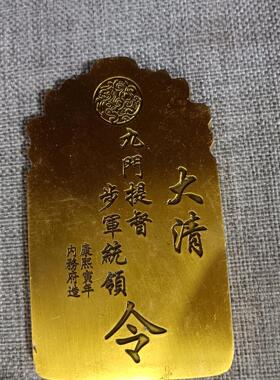 大清
九門提督
步軍統領
令
康熙寅年
內務府造